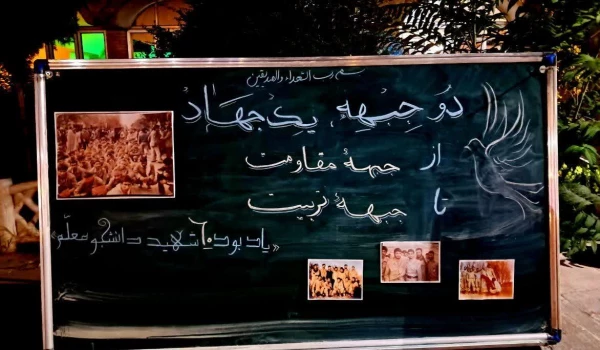 بسم رب الشهداء والصدیقین
دو جبهه یک جهاد
از جبههٔ مقاومت
تا جبههٔ تربیت
«یادبود ۶۰ شهید دانشجو معلم»